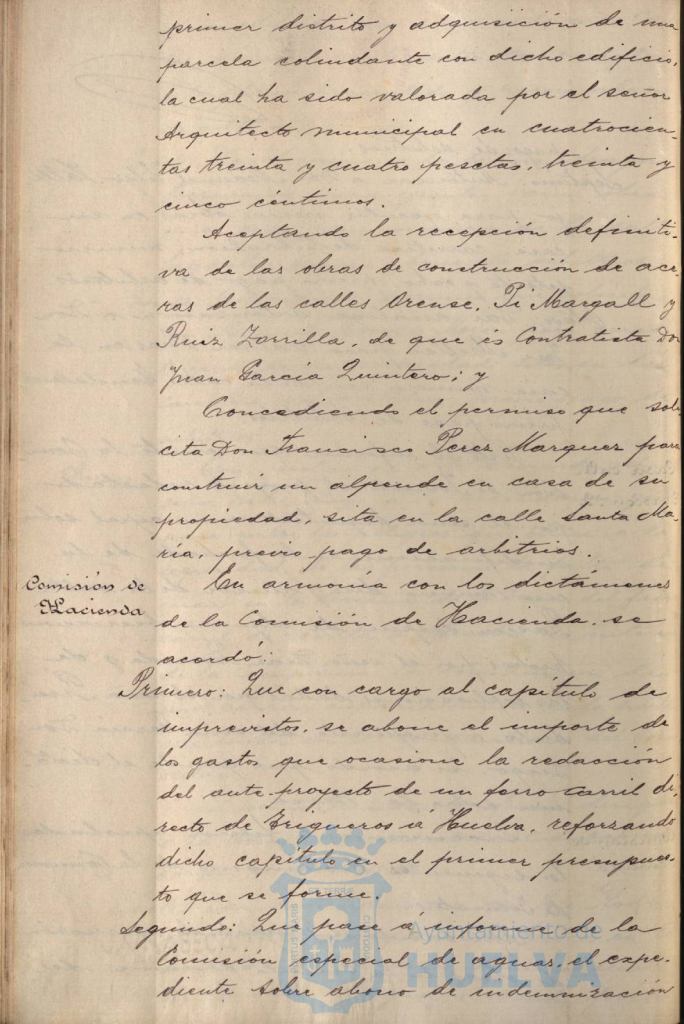 primer distrito y adquisición de una
parcela colindante con dicho edificio,
la cual ha sido valorada por el señor
Arquitecto municipal en cuatrocien-
tas treinta y cuatro pesetas, treinta y
cinco céntimos.
Aceptando la recepción definiti-
va de las obras de construcción de ace-
ras de las calles Orense, Pi Margall y
Ruiz Zorrilla, de que és Contratista Don
Juan García Quintero; y
Concediendo el permiso que soli
cita Don Francisco Perez Marquez para
construir un alpende en casa de su
propiedad, sita en la calle Santa Ma-
ría, previo pago de arbitrios.
Comisión de
Hacienda
En armonía con los dictámenes
de la Comisión de Hacienda, se
acordó:
Primero: Que con cargo al capítulo de
imprevistos, se abone el importe de
los gastos que ocasione la redacción
del ante proyecto de un ferro carril di-
recto de Trigueros á Huelva, reforzando
dicho capítulo en el primer presupues-
to que se forme.
Segundo: Que pase á informe de la
Comisión especial de aguas, el expe-
diente sobre abono de indemnización
Ayuntamiento de
HUELVA